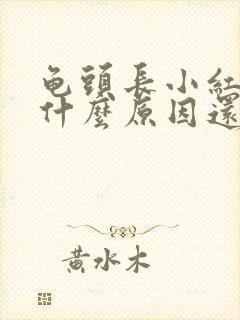 龟頭長小紅
什麼原因還
黄水木